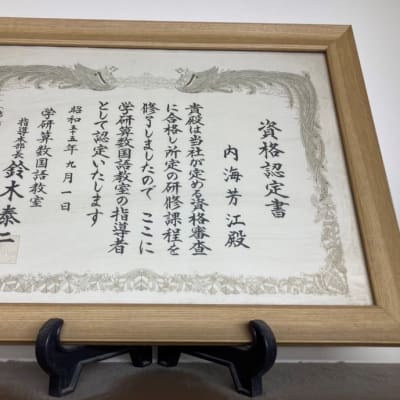 資格認定書
内海芳江殿
貴殿は当社が定める資格審査
に合格し所定の研修課程を
修了しましたので ここに
学研算数国語教室の指導者
として認定いたします
昭和五五年九月一日
学研算数国語教室
指導本部長 鈴木泰二